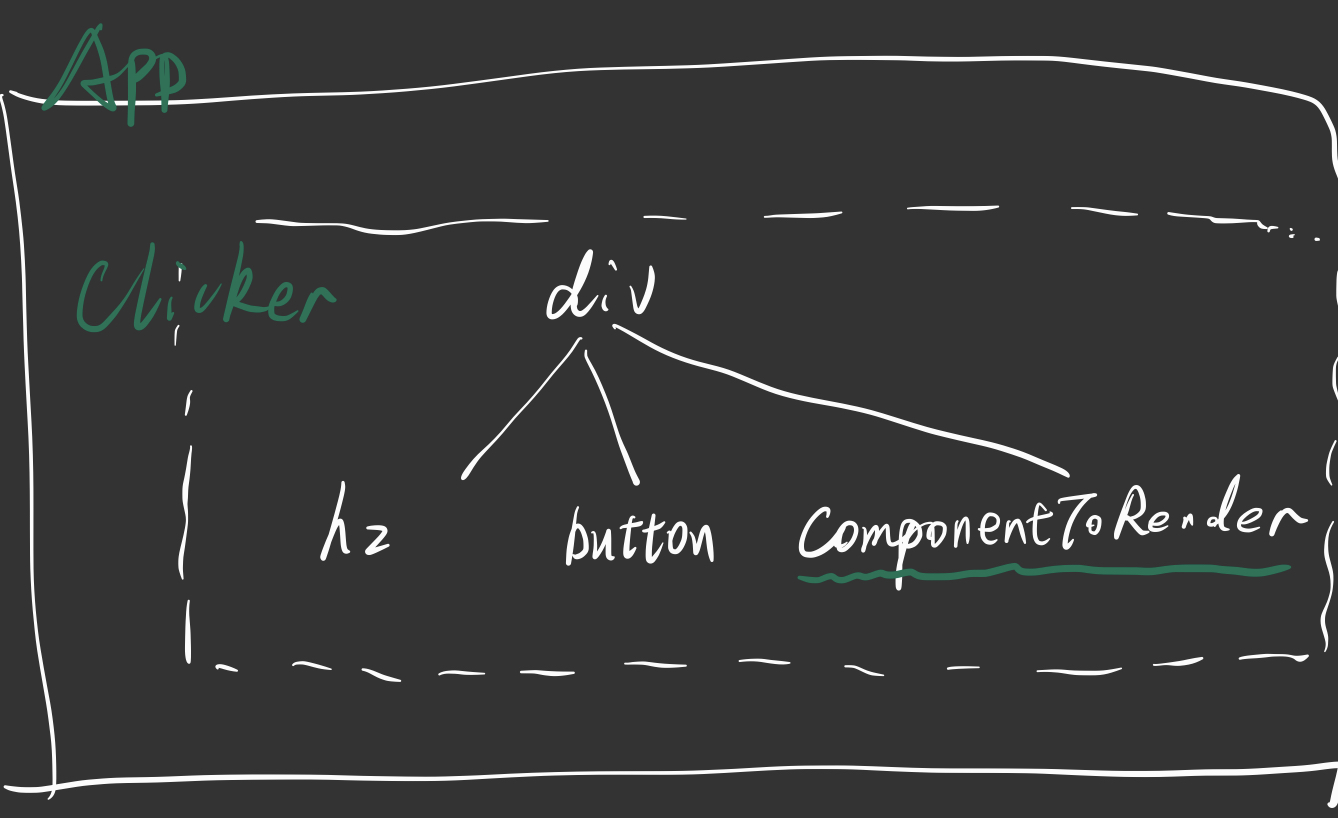 App
Clicker
div
h2
button
ComponentToRender